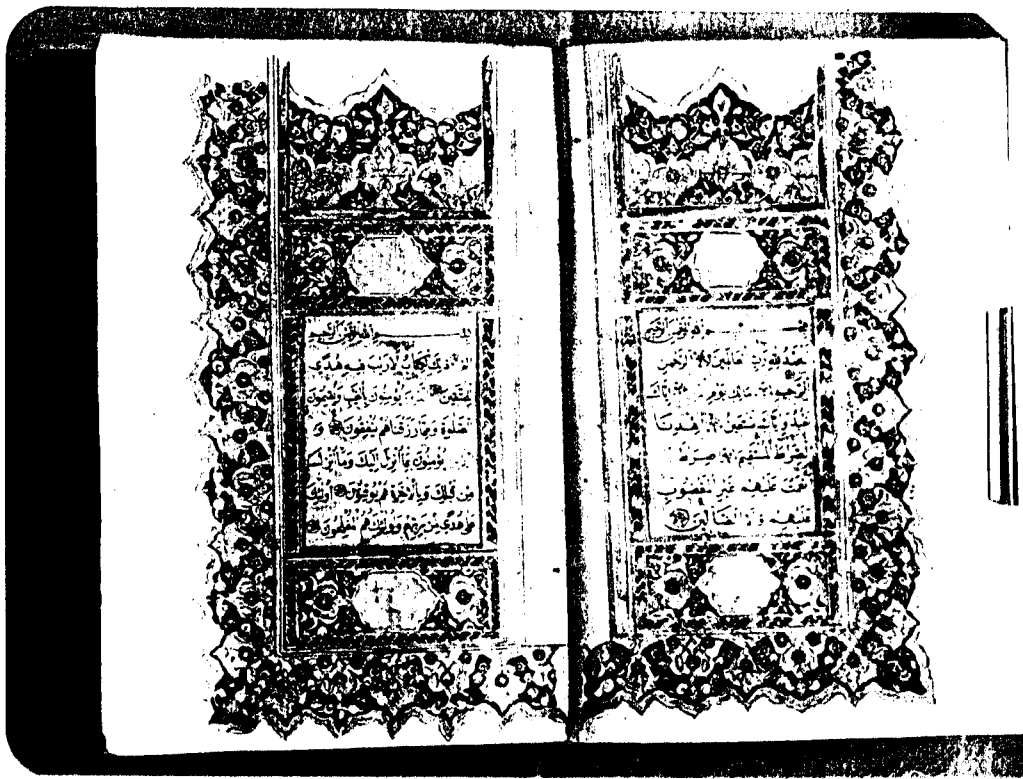 بسم الله الرحمن الرحيم
الحمد لله رب العالمين الرحمن
الرحيم مالك يوم الدين إياك
نعبد وإياك نستعين اهدنا
الصراط المستقيم صراط الذين
أنعمت عليهم غير المغضوب
عليهم ولا الضالين
بسم الله الرحمن الرحيم
الم ذلك الكتاب لا ريب فيه هدى
للمتقين الذين يؤمنون بالغيب ويقيمون
الصلوة ومما رزقناهم ينفقون و
الذين يؤمنون بما أنزل إليك وما أنزل
من قبلك وبالآخرة هم يوقنون أولئك
على هدى من ربهم وأولئك هم المفلحون